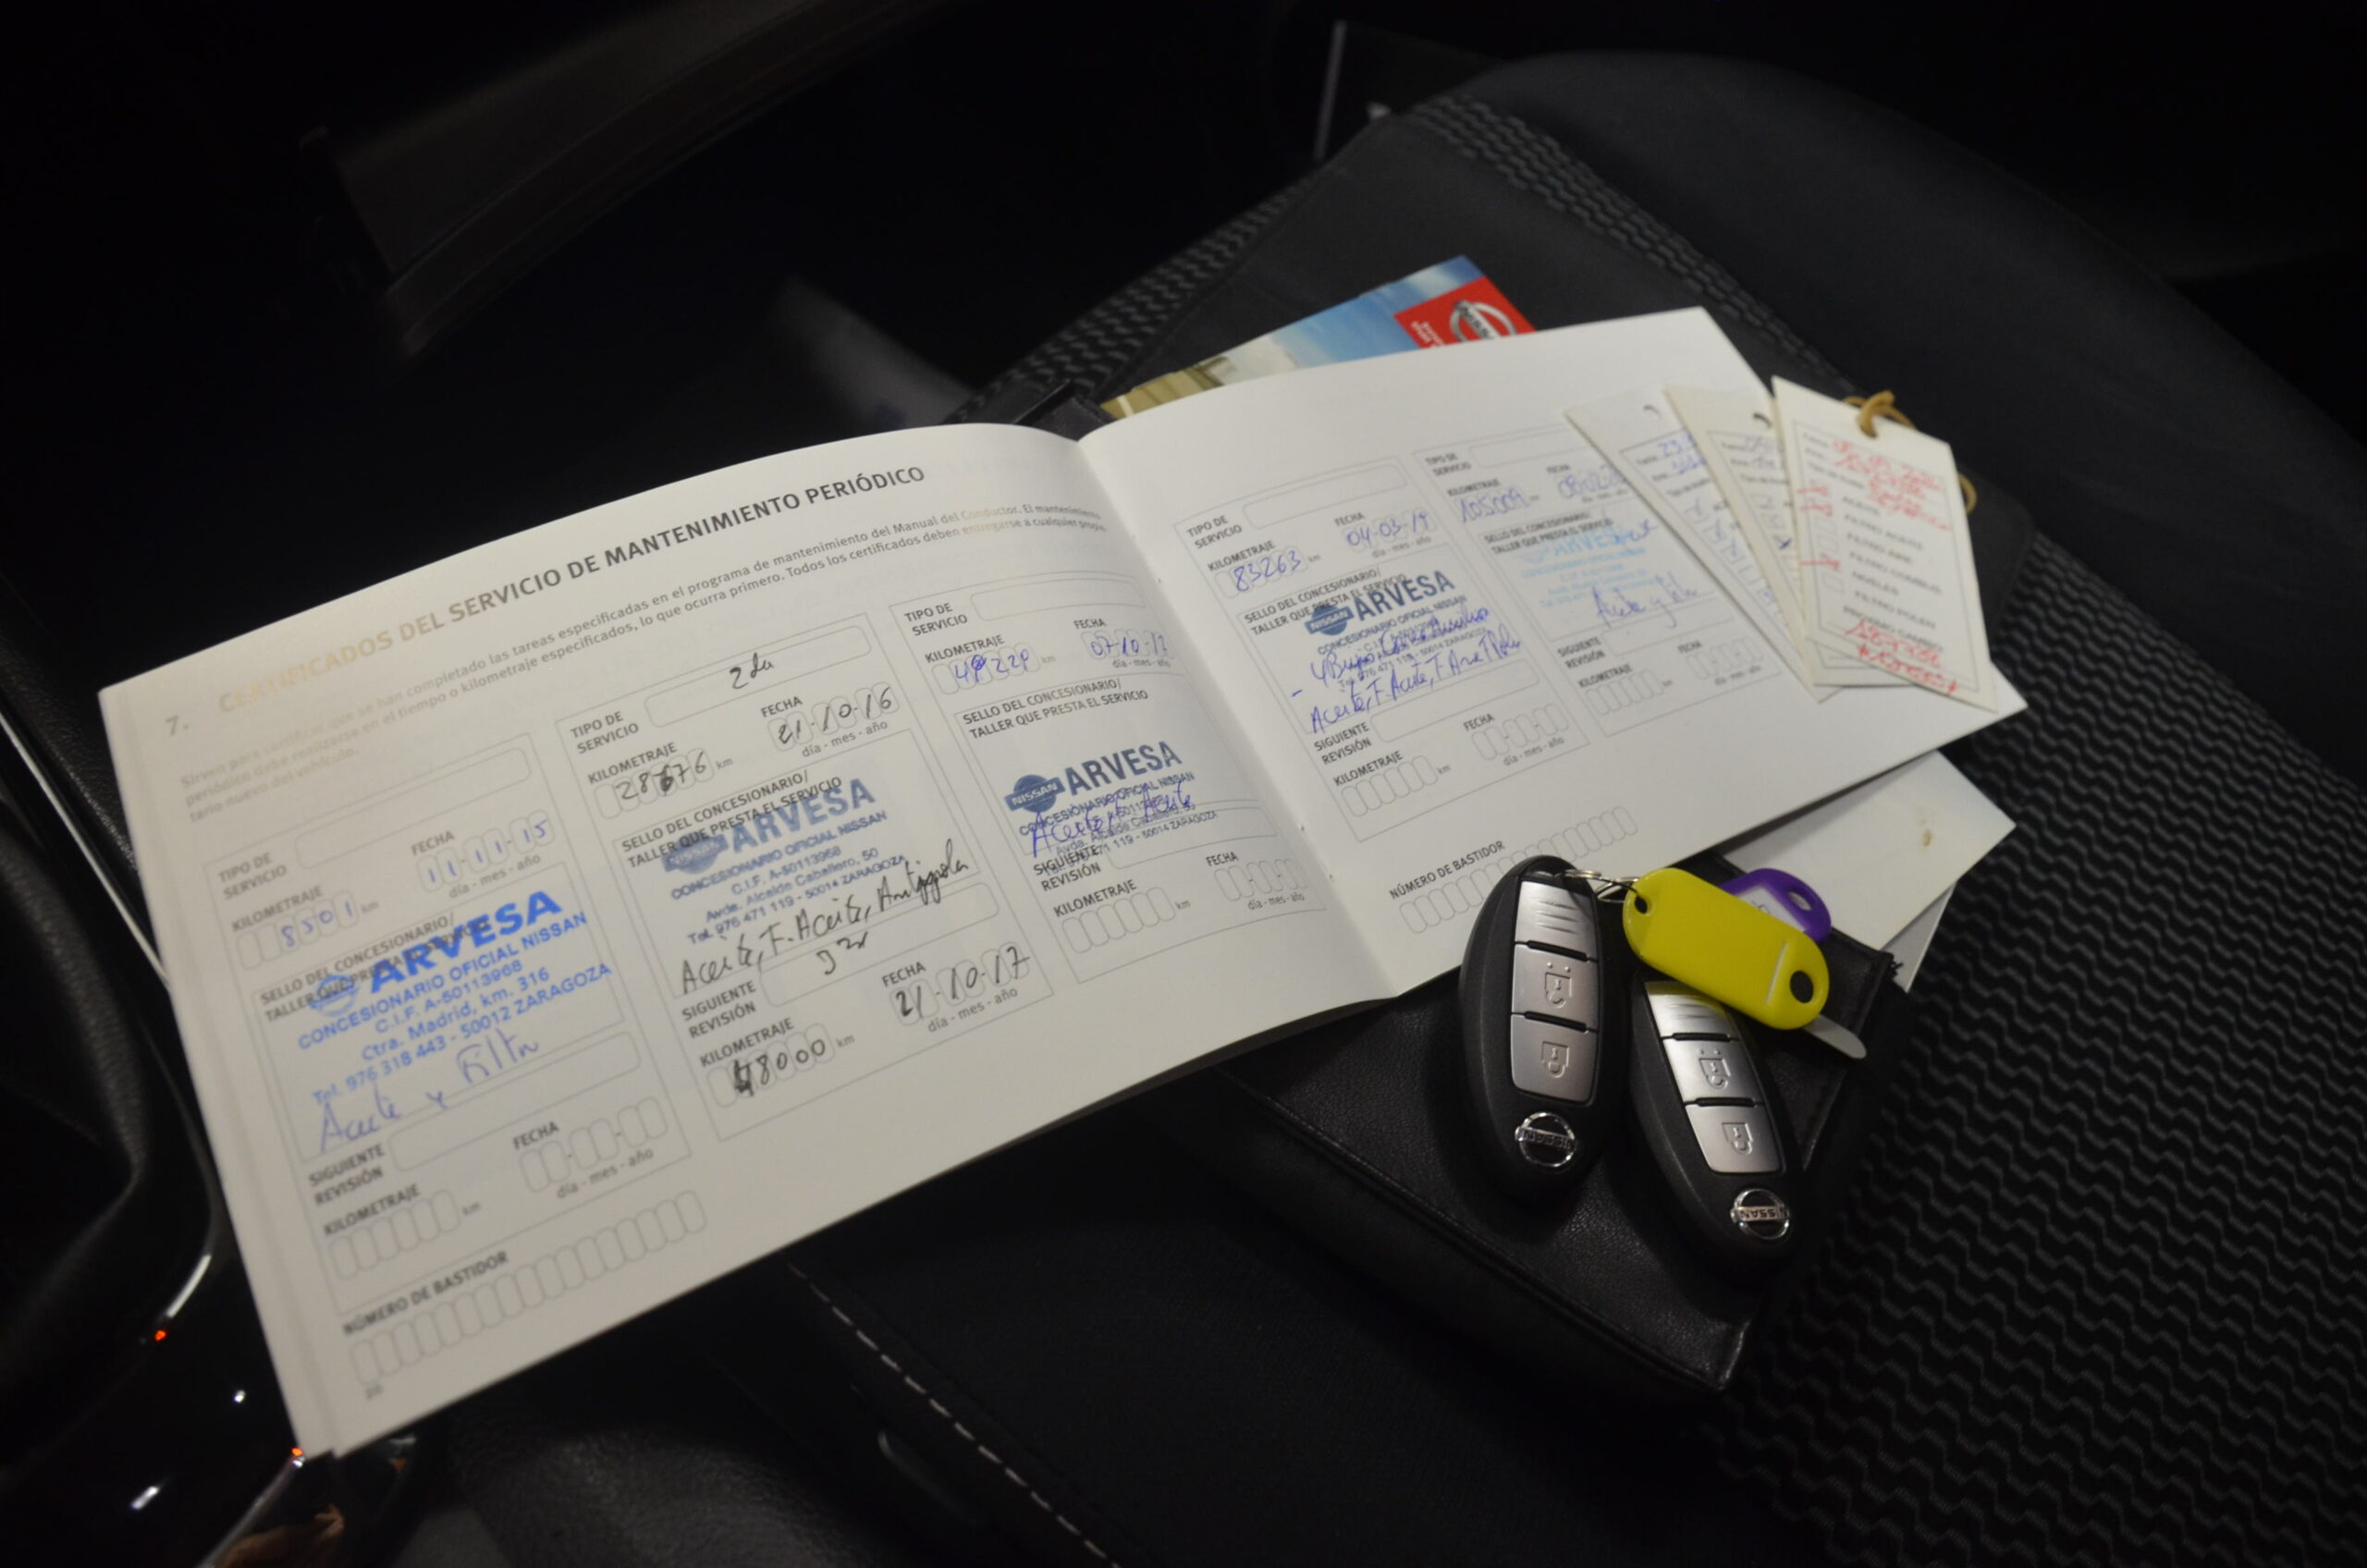 7. CERTIFICADOS DEL SERVICIO DE MANTENIMIENTO PERIÓDICO
Sirven para certificar que se han completado las tareas especificadas en el programa de mantenimiento del Manual del Conductor. El mantenimiento
periódico debe realizarse en el tiempo o kilometraje especificados, lo que ocurra primero. Todos los certificados deben entregarse a cualquier propie-
tario nuevo del vehículo.
TIPO DE
SERVICIO
KILOMETRAJE
FECHA
8501 km
11-11-15
día - mes - año
SELLO DEL CONCESIONARIO/
TALLER QUE PRESTA EL SERVICIO
ARVESA
CONCESIONARIO OFICIAL NISSAN
C.I.F. A-50113968
Ctra. Madrid, km. 316
Tel. 976 318 443 - 50012 ZARAGOZA
Aceite y Filtro
SIGUIENTE
REVISIÓN
KILOMETRAJE
FECHA
km
día - mes - año
NÚMERO DE BASTIDOR
TIPO DE
SERVICIO
2da
KILOMETRAJE
FECHA
28676 km
21-10-16
día - mes - año
SELLO DEL CONCESIONARIO/
TALLER QUE PRESTA EL SERVICIO
NISSAN ARVESA
CONCESIONARIO OFICIAL NISSAN
C.I.F. A-50113968
Avda. Alcalde Caballero, 50
Tel. 976 471 119 - 50014 ZARAGOZA
Aceite, F. Aceite,
SIGUIENTE
REVISIÓN
KILOMETRAJE
FECHA
48000 km
21-10-17
día - mes - año
TIPO DE
SERVICIO
KILOMETRAJE
FECHA
km
07-10-17
día - mes - año
SELLO DEL CONCESIONARIO/
TALLER QUE PRESTA EL SERVICIO
NISSAN ARVESA
CONCESIONARIO OFICIAL NISSAN
Avda. Alcalde Caballero, 50
Tel. 976 471 119 - 50014 ZARAGOZA
SIGUIENTE
REVISIÓN
KILOMETRAJE
FECHA
km
día - mes - año
TIPO DE
SERVICIO
KILOMETRAJE
FECHA
83263 km
04-03-19
día - mes - año
SELLO DEL CONCESIONARIO/
TALLER QUE PRESTA EL SERVICIO
NISSAN ARVESA
CONCESIONARIO OFICIAL NISSAN
Aceite, F. Aceite,
SIGUIENTE
REVISIÓN
KILOMETRAJE
FECHA
km
día - mes - año
NÚMERO DE BASTIDOR
TIPO DE
SERVICIO
KILOMETRAJE
FECHA
105009 km
SELLO DEL CONCESIONARIO/
TALLER QUE PRESTA EL SERVICIO
ARVESA
SIGUIENTE
REVISIÓN
KILOMETRAJE
FECHA
km
día - mes - año
ACEITE
FILTRO ACEITE
FILTRO AIRE
FILTRO COMBUS.
NIVELES
FILTRO POLEN
PROXIMO CAMBIO
NISSAN
NISSAN